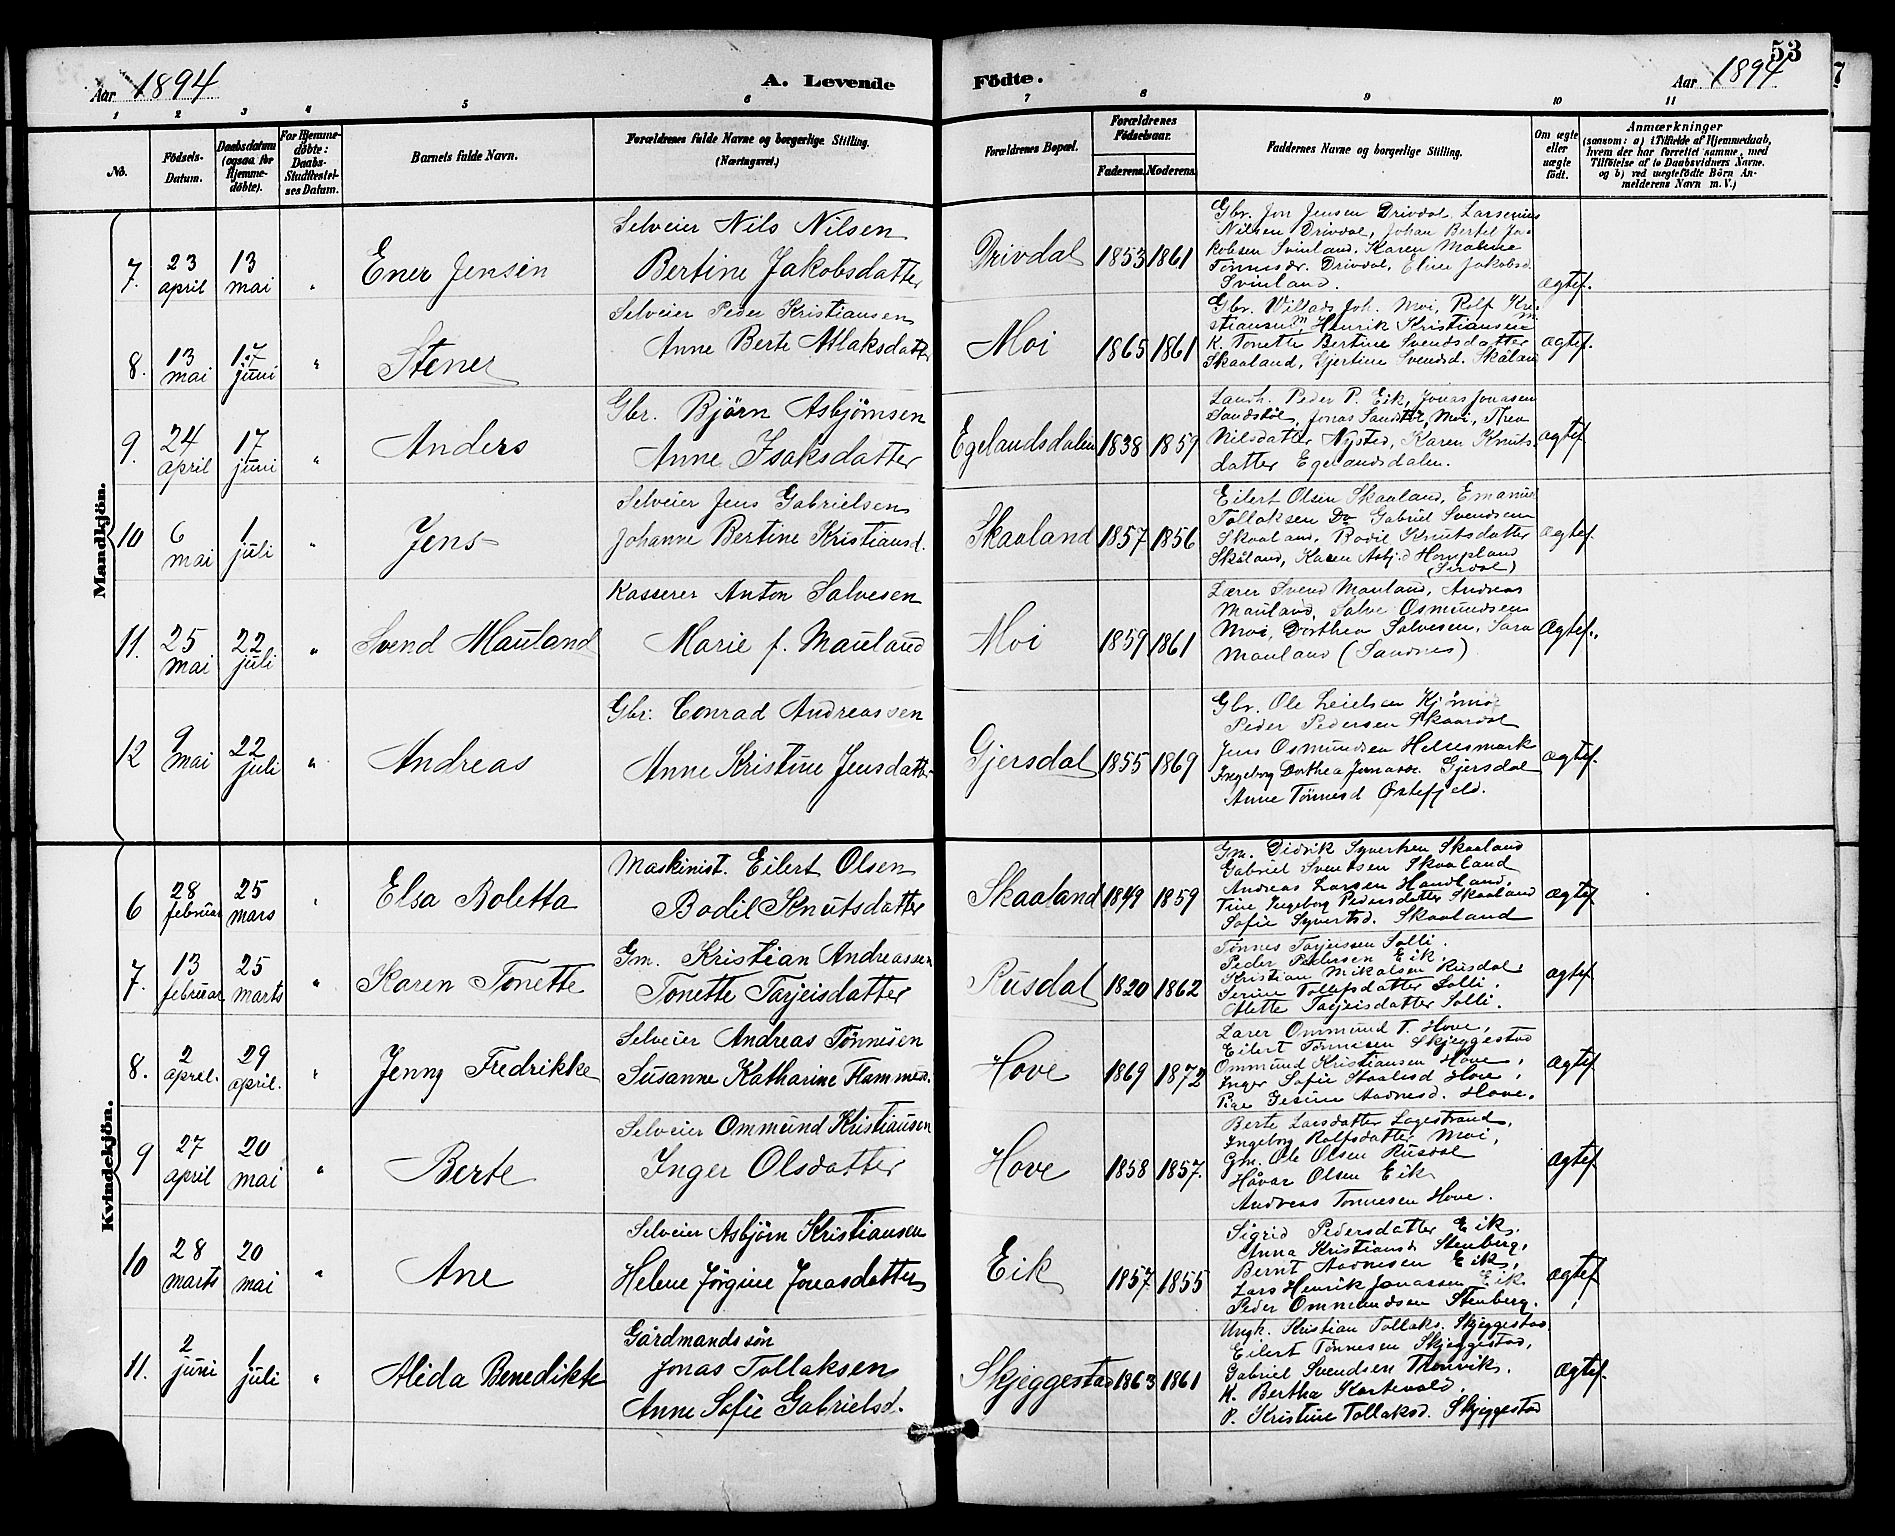 53
Aar 1894
A. Levende
Födte.
Aar 1894
1 2 3 4 5 6 7 8 9 10 11
No.
Födsels-Datum.
Daabsdatum (ogsaa for Hjemme-döbte).
For Hjemme-döbte: Daabs-Stadfæstel-ses Datum.
Barnets fulde Navn.
Forældrenes fulde Navne og borgerlige Stilling.
(Næringsvei.)
Forældrenes Bopæl.
Forældrenes Födselsaar.
Faderens Moderens
Faddernes Navne og borgerlige Stilling.
Om ægte eller uægte födt.
Anmærkninger
(saasom: a) i Tilfælde af Hjemmedaab, hvem der har forrettet samme, med Tilföielse af to Daabsvidners Navne, og b) ved uægtefödte Börn An-melderens Navn m. V.)
Mandkjön.
7. 23 april 13 mai " Ener Jensen
Selveier Nils Nilsen
Bertine Jakobsdatter
Drivdal 1853 1861
Gbr. Jon Jensen Drivdal, Larsenius
Nilsen Drivdal, Johan Bertel Ja-
kobsen Svinland, Karen Malene
Tönnesdr. Drivdal, Eline Jakobsd.
Svinland.
ægtef.
8. 13 mai 17 juni " Stener
Selveier Peder Kristiansen
Anne Berte Atlaksdatter
Moi 1865 1861
Gbr. Villads Joh. Moi, Rolf Kri-
stiansen M, Henrik Kristiansen M.
K. Tonette Bertine Svendsdatter
Skaaland, Gjertine Svendsd. Skålan
ægtef.
9. 24 april 17 juni " Anders
Gbr. Björn Asbjörnsen
Anne Isaksdatter
Egelandsdalen 1838 1859
Landh. Peder P. Eik, Jonas Jonassen
Sandstöl, Jonas Sandstöl, Moi, Thea
Nilsdatter Nysted, Karen Knuts-
datter Egelandsdalen.
ægtef
10 6 mai 1 juli " Jens
Selveier Jens Gabrielsen
Johanne Bertine Kristiansd.
Skaaland 1857 1856
Eilert Olsen Skaaland, Emanuel
Tollaksen Do Gabriel Svendsen
Skaaland, Bodil Knutsdatter
Skåland, Karen Asbj.d Hompland
(Sirdal)
ægtef.
11. 25 mai 22 juli " Svend Mauland
Kasserer Anton Salvesen
Marie f. Mauland
Moi 1859 1861
Lærer Svend Mauland, Andreas
Mauland, Salve Osmundsen
Moi, Dorthea Salvesen, Sara
Mauland (Sandnes)
Ægtef.
12 9 mai 22 juli " Andreas
Gbr. Conrad Andreassen
Anne Kristine Jensdatter
Gjersdal 1855 1869
Gbr. Ole
Peder Pedersen Skaardal
Jens Osmundsen Hellesmark
Ingeborg Dorthea Jonasdr. Gjersdal
Anne Tönnesd Östefjeld.
ægtef.
Kvindekjön.
6 28 februar 25 mars " Elsa Boletta
Maskinist. Eilert Olsen
Bodil Knutsdatter
Skaaland 1849 1859
Gm. Didrik Syvertsen Skaaland
Gabriel Svendsen Skaaland
Andreas Larsen Handland,
Tine Ingeborg Pedersdatter Skaaland
Sofie Syvertsd. Skaaland
ægtef
7. 13 februar 25 marts " Karen Tonette
Gm. Kristian Andreassen
Tonette Tarjeisdatter
Rusdal 1820 1862
Tönnes Tarjeisen Solli.
Peder Pedersen Eik.
Kristian Mikalsen Rusdal.
Serine Tollefsdatter Solli.
Alette Tarjeisdatter Solli.
ægtef
8. 2 aprel. 29 april. " Jenny Fredrikke
Selveier Andreas Tönnesen
Susanne Katharine Flammed.
Hove 1869 1872
Lærer Ommund T. Hove,
Eilert Tönnesen Skjeggestad
Ommund Kristiansen Hove,
Inger Sofie Staalesd Hove,
Pige Gesine Aadnesd. Hove.
ægtef
9 27 april 20 mai " Berte
Selveier Ommund Kristiansen
Inger Olsdatter
Hove 1858 1857.
Berte Larsdatter Lagestrand,
Ingeborg Rolfsdatter Moi,
Gm. Ole Olsen Rusdal
Håvar Olsen Eik
Andreas Tönnesen Hove.
ægtef
10 28 marts 20 mai " Ane
Selveier Asbjörn Kristiansen
Helene Jörgine Jonasdatter
Eik 1857. 1855
Sigrid Pedersdatter Eik,
Anna Kristiansd Stenberg,
Bernt Aadnesen Eik,
Lars Henrik Jonassen Eik
Peder Ommundsen Stenberg.
ægtef
11. 2 juni 1 juli " Alida Benedikte
Gårdmandssön
Jonas Tollaksen
Anne Sofie Gabrielsd.
Skjeggestad 1863 1861
Ungk. Kristian Tollaks. Skjeggestad,
Eilert Tönnesen Skjeggestad,
Gabriel Svendsen Tronvik,
K. Bertha Kartevold.
P. Kristine Tollaksd. Skjeggestad
ægtef.